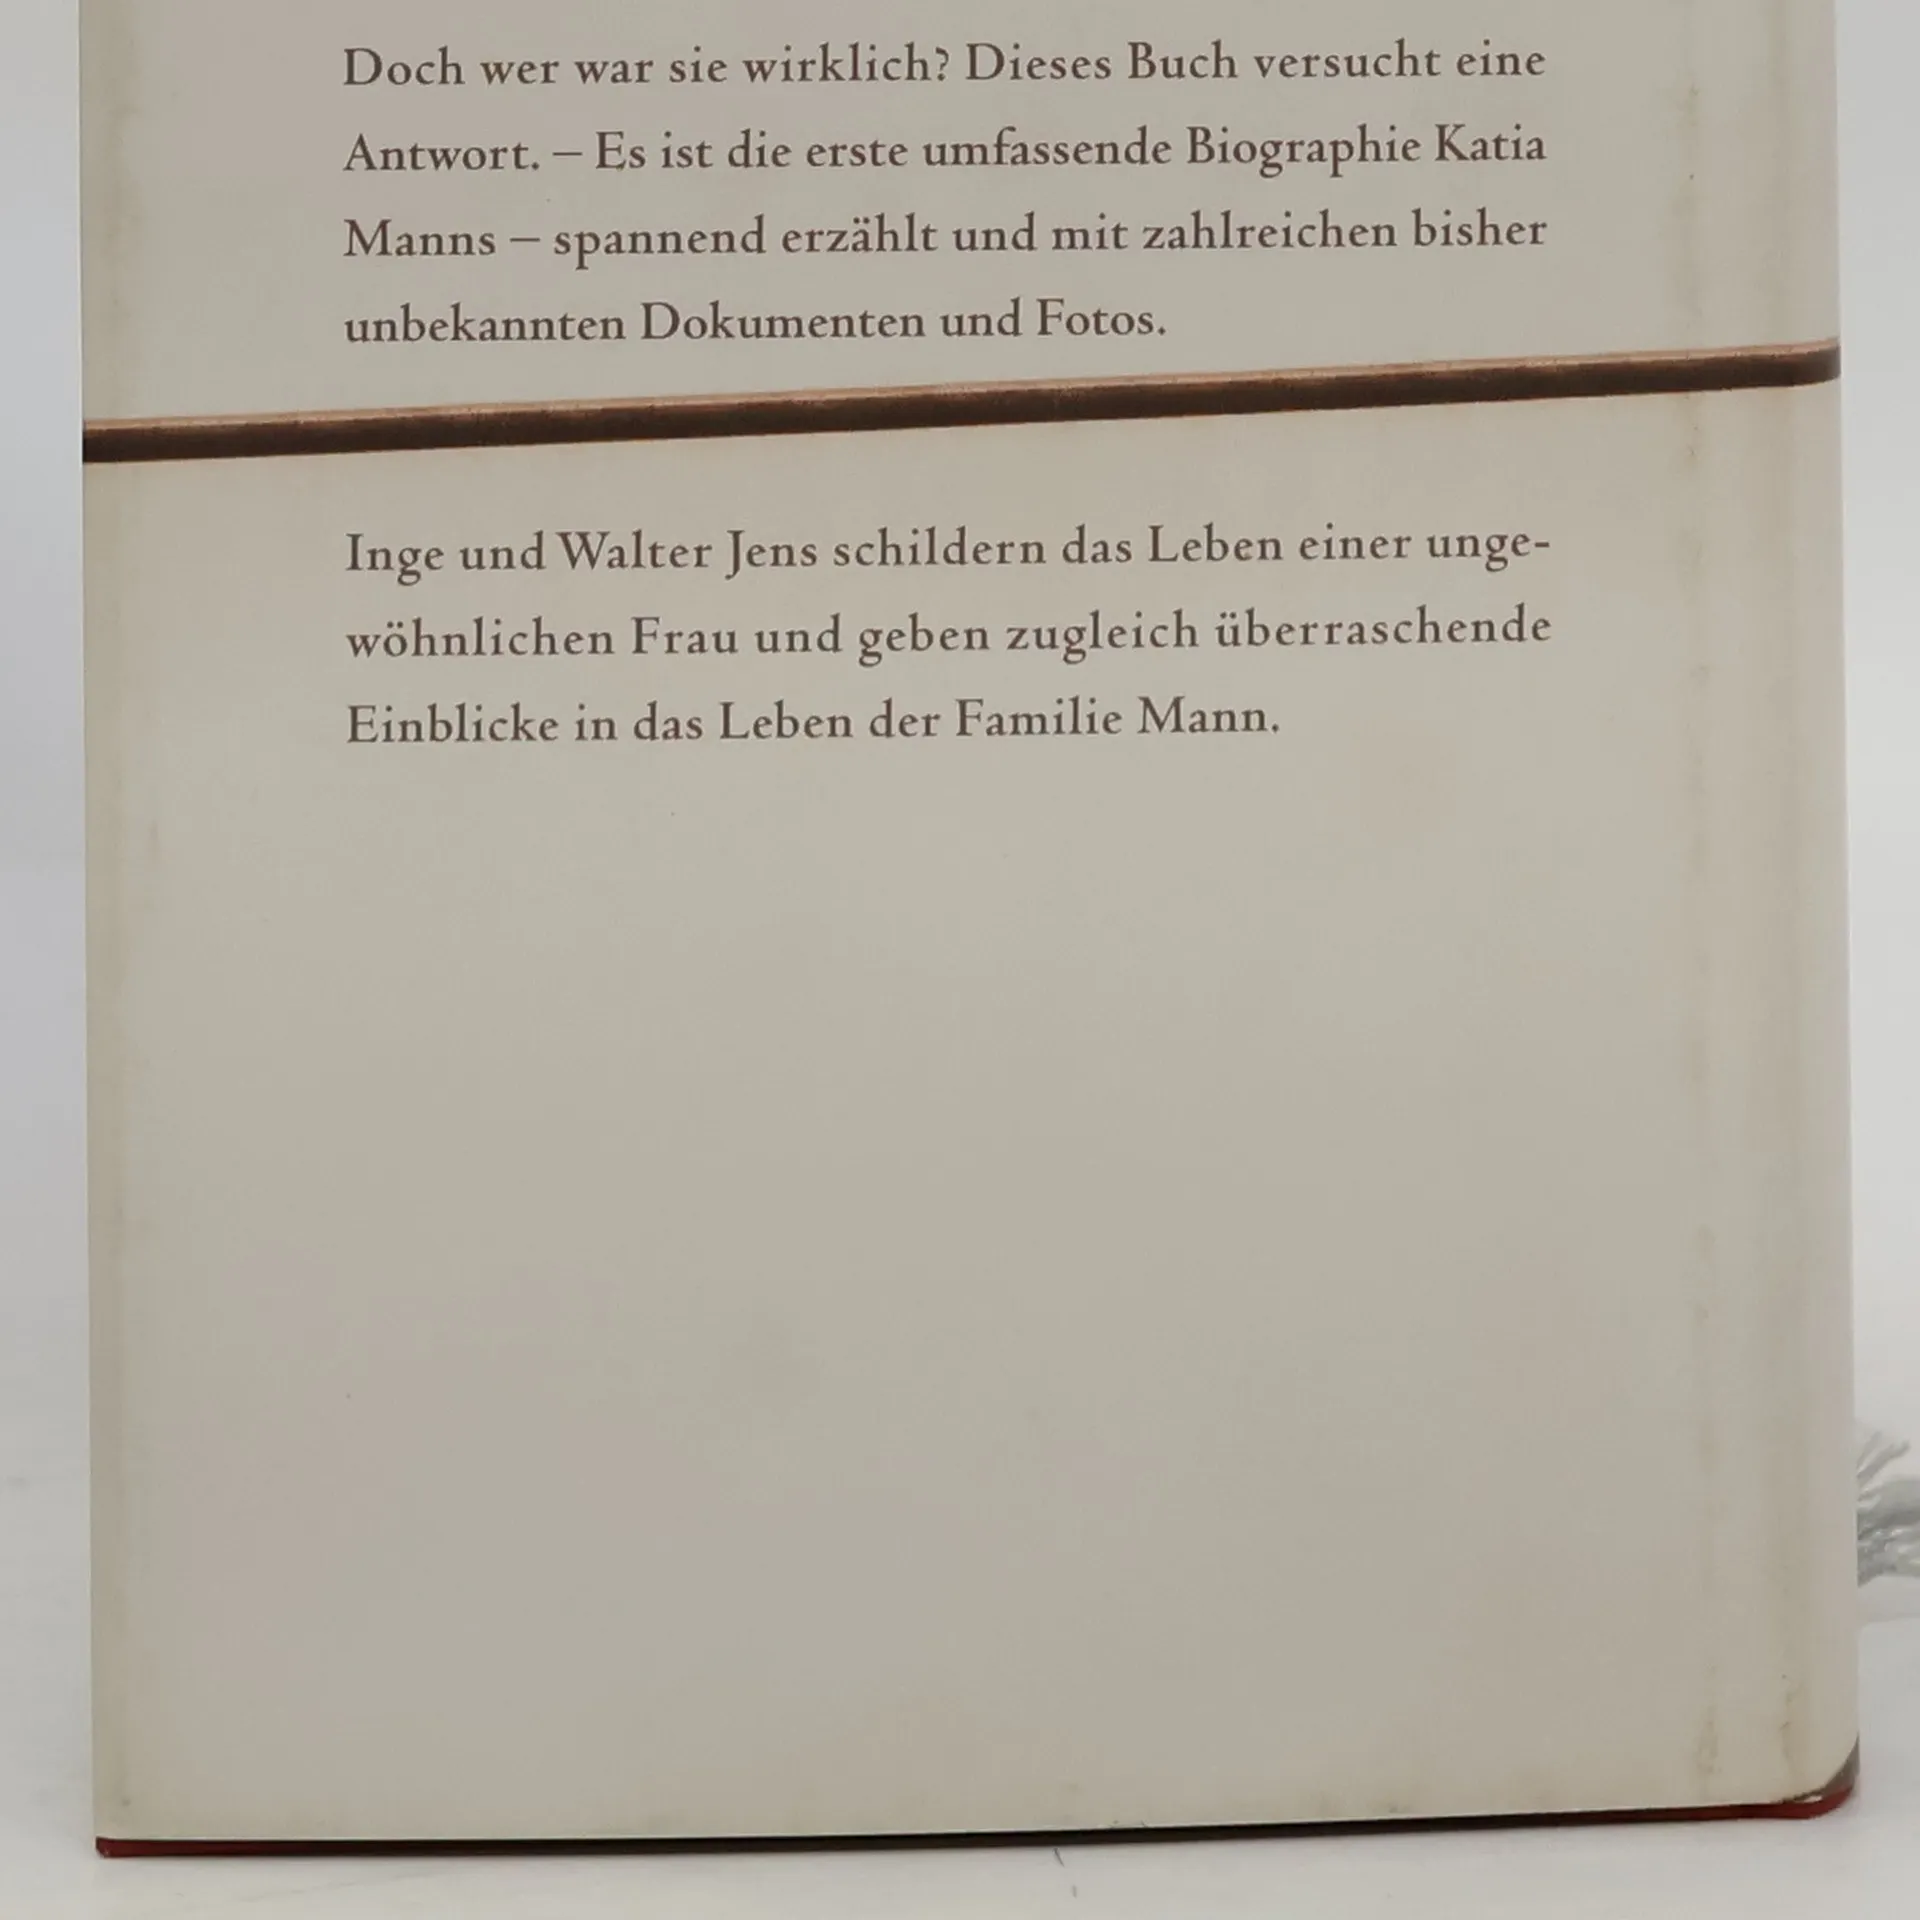 Doch wer war sie wirklich? Dieses Buch versucht eine
Antwort. – Es ist die erste umfassende Biographie Katia
Manns – spannend erzählt und mit zahlreichen bisher
unbekannten Dokumenten und Fotos.
Inge und Walter Jens schildern das Leben einer unge-
wöhnlichen Frau und geben zugleich überraschende
Einblicke in das Leben der Familie Mann.